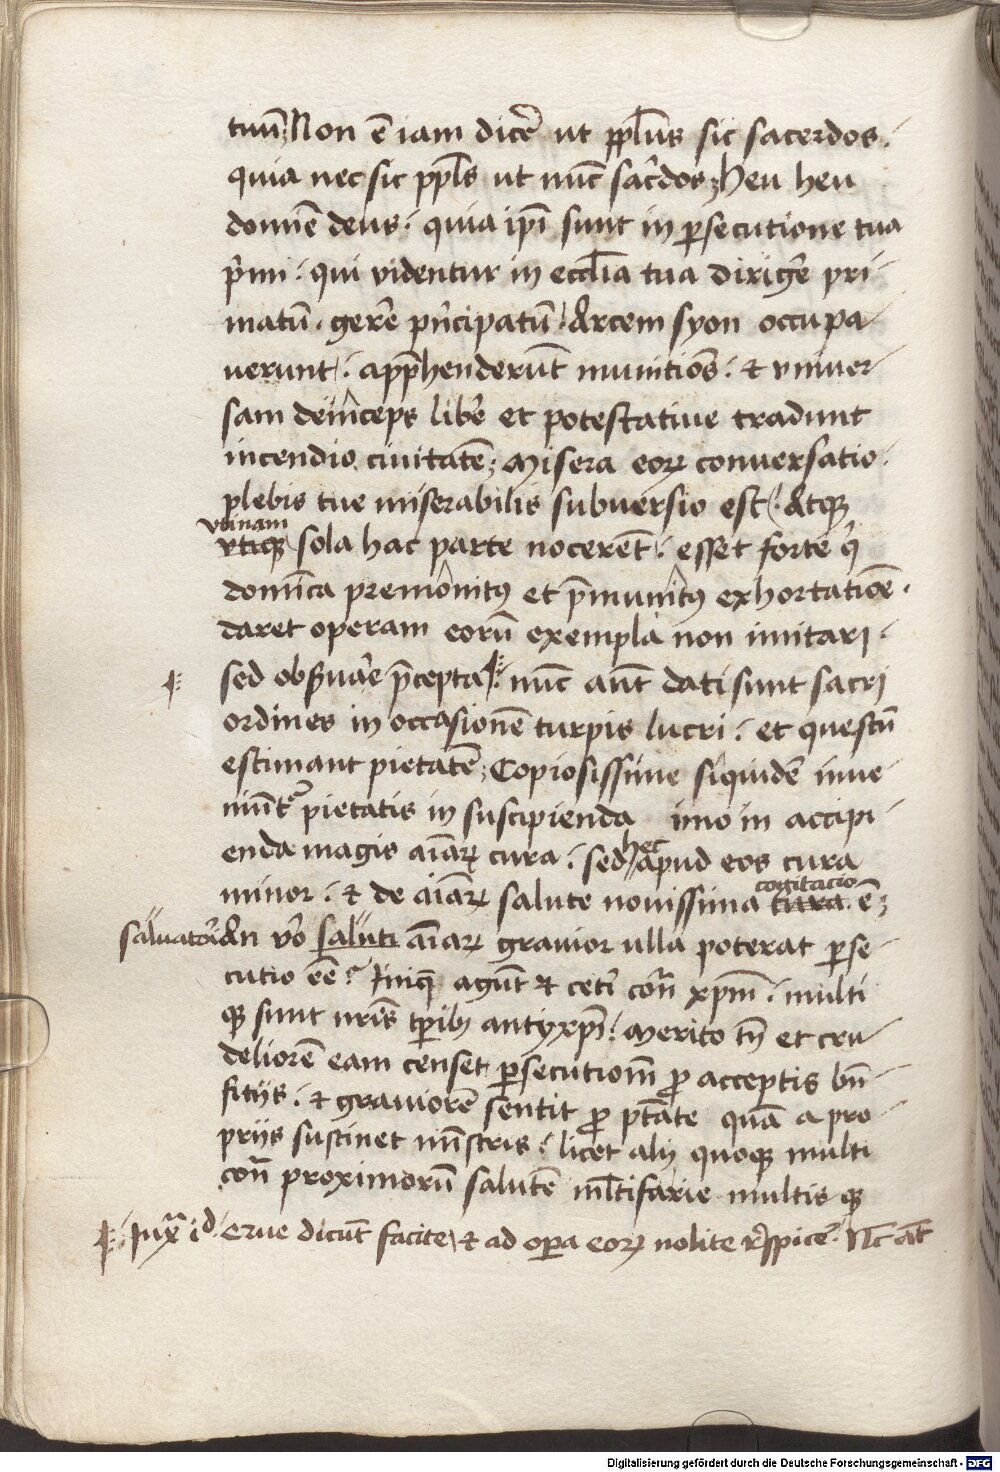 tuū; Non ē iam dicē̄ ut ppl̄us sic sacerdos.
quia nec sic ppl̄s ut nūc sac̄dos; heu heu
domīe deus: quia ip̄i sunt in ꝑsecutione tua
p̄mi: qui videntur in eccl̄ia tua dirigē̄ pri
matū. gerē̄ pn̄cipatū: Arcem syon occupa
uerunt: app̄henderūt munitiōs: et vniuer
sam deīnceps libē̄ et potestatiue tradunt
incendio ciuitatē; Misera eoꝝ conuersatio:
plebis tue miserabilis subuersio est: Atqꝫ
vtinam
vtiqꝫ sola hac parte nocerēt: esset forte qͥ
domīca premonitꝰ et p̄munitꝰ exhortatiōe.
daret operam eorū exempla non imitari:
sed obẜuar̄e p̄cepta: nūc aūt dati sunt sacri
ordines in occasionem turpis lucri: et questū
estimant pietatē; Copiosissime siquidē inue
niūt᷒ pietatis in suscipienda imo in accipi
enda magis aīaꝝ cura: sed hec apud eos cura
minor: et de aīaꝝ salute nouissima cura ē;
cogitacio
saluatori An v̄o saluti aīaꝝ grauior ulla poterat ꝑse
cutio eē? Iniqꝫ agūt et cetī con̄ xpm̄: multi
qꝫ sunt nr̄is tꝑibꝫ antyxp̄i: Merito tn̄ et cru
deliorē eam censet ꝑsecutiom̄ ꝓ acceptis bn̄
ficijs: et grauiorē sentit ꝓ ptāte quā a pro
prijs sustinet mīstris: licet alij quoqꝫ multi
con̄ proximorū salutē ml̄tifarie multis qꝫ
Iuxͣ id. erue dicūt facite et ad oꝑa eoꝝ nolite r̄spicē̄. Nc̄ āt